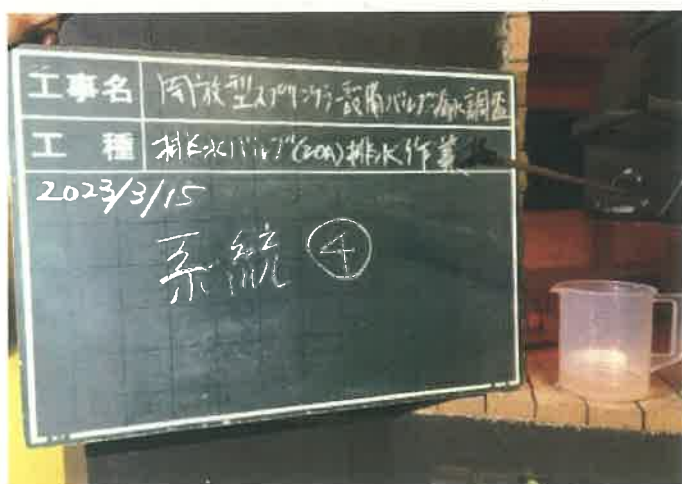 工事名 開放型スプリンクラー設備バルブ漏水調査
工種 排水バルブ(20A)排水作業
2023/3/15
系統 ④